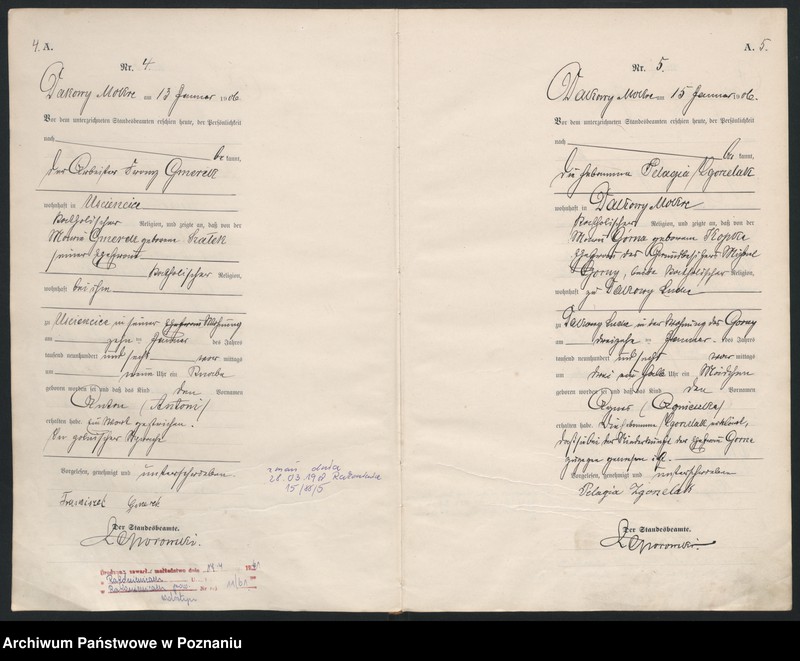 4. A.
Nr. 4.
Dalkowy Mokre am 13 Januar 1906.
Vor dem unterzeichneten Standesbeamten erschien heute, der Persönlichkeit
nach
be kannt,
der Arbeiter Franz
wohnhaft in Usciencice
katholischer Religion, und zeigte an, daß von der
geborene
seiner Ehefrau
katholischer Religion,
wohnhaft bei ihm
zu Uscienice in seiner Wohnung
am zehn ten Januar des Jahres
tausend neunhundert und sechs vor mittags
um neun Uhr ein Knabe
geboren worden sei und daß das Kind den Vornamen
Anton (Antoni)
erhalten habe. Ein Wort gestrichen.
In polnischer Sprache
Vorgelesen, genehmigt und unterschrieben.
Franciszek
Der Standesbeamte.
zmarł dnia
28.03.19
15/ /5
zawarł małżeństwo dnia
Nr
A. 5.
Nr. 5.
Dalkowy Mokre am 15 Januar 1906.
Vor dem unterzeichneten Standesbeamten erschien heute, der Persönlichkeit
nach
be kannt,
die Hebamme Pelagia Zgorzelak
wohnhaft in Dalkowy Mokre
katholischer Religion, und zeigte an, daß von der
Gorna geborene
Ehefrau des Grundbesitzers Michael
Gorny, beide katholischer Religion,
wohnhaft zu
zu in der Wohnung der Gorny
am dreizehn ten Januar des Jahres
tausend neunhundert und sechs vor mittags
um drei ein halb Uhr ein Mädchen
geboren worden sei und daß das Kind den Vornamen
Agnes (Agnieszka)
erhalten habe. Die Hebamme Zgorzelak erklärt,
daß sie bei der Niederkunft der Ehefrau Gorna
zugegen gewesen ist.
Vorgelesen, genehmigt und unterschrieben
Pelagia Zgorzelak
Der Standesbeamte.
Archiwum Państwowe w Poznaniu